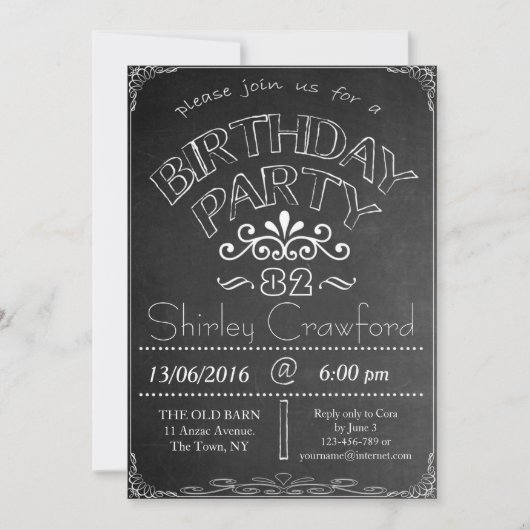 please join us for a
BIRTHDAY
PARTY
82
Shirley Crawford
13/06/2016 @ 6:00 pm
THE OLD BARN
11 Anzac Avenue.
The Town, NY
Reply only to Cora
by June 3
123-456-789 or
yourname@internet.com